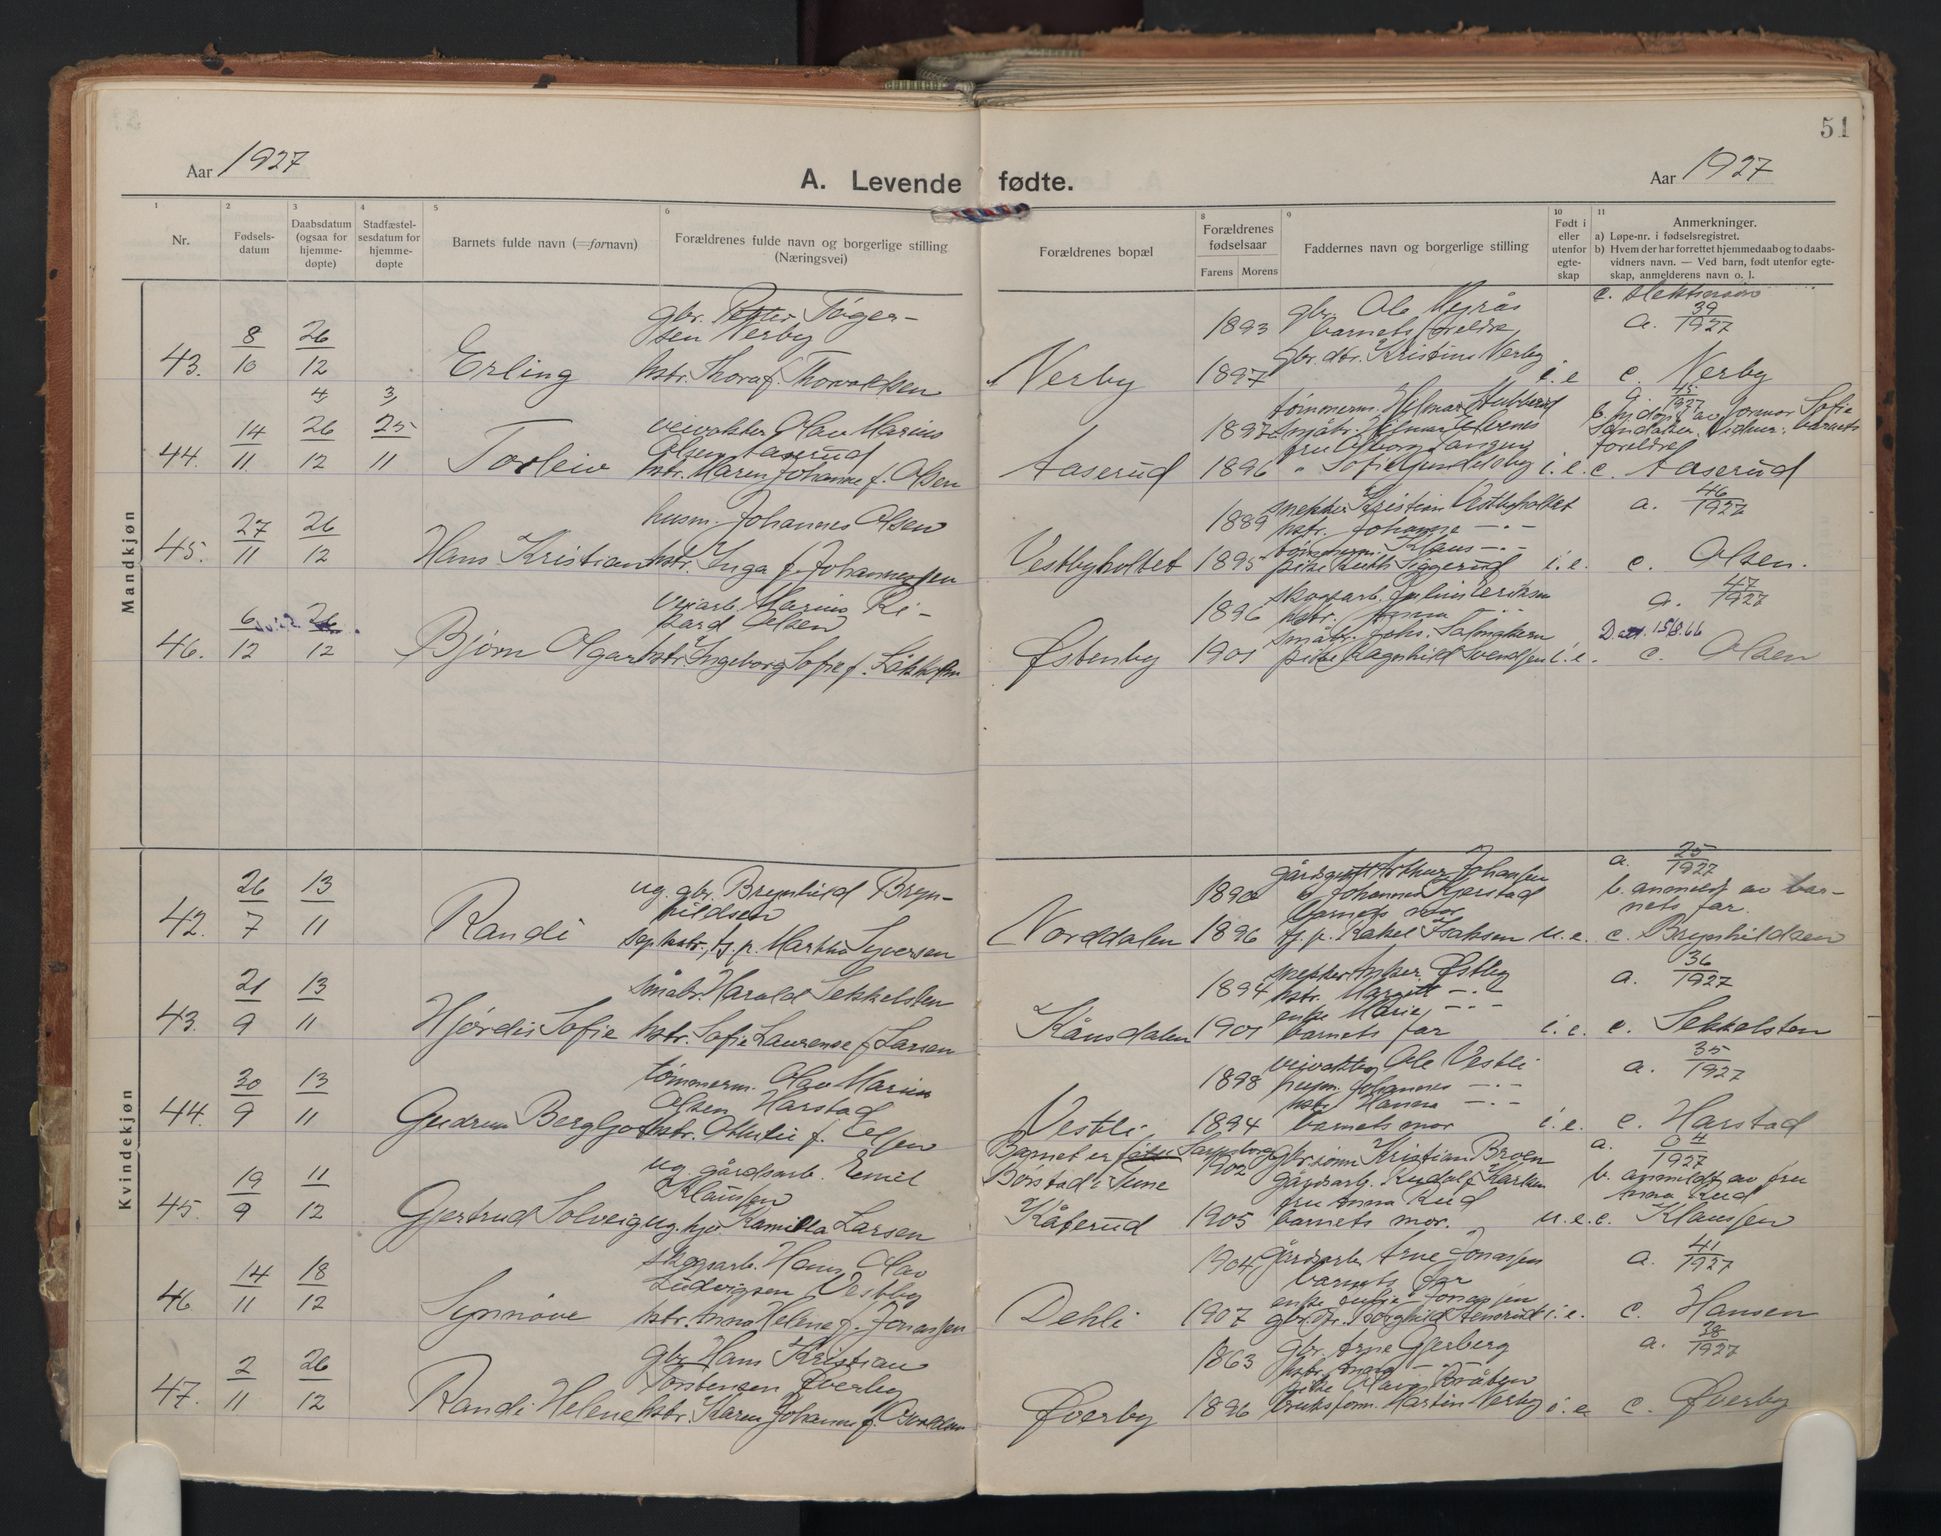 51
Aar 1927
A. Levende fødte.
Aar 1927
1 2 3 4 5 6 8 9 10 11
Nr.
Fødsels-
datum
Daabsdatum
(ogsaa for
hjemme-
døpte)
Stadfæstel-
sesdatum for
hjemme-
døpte
Barnets fulde navn (=fornavn)
Forældrenes fulde navn og borgerlige stilling
(Næringsvei)
Forældrenes bopæl
Forældrenes
fødselsaar
Farens Morens
Faddernes navn og borgerlige stilling
Født i
eller
utenfor
egte-
skap
Anmerkninger.
a) Løpe-nr. i fødselsregistret.
b) Hvem der har forrettet hjemmedaab og to daabs-
vidners navn. — Ved barn, født utenfor egte-
skap, anmelderens navn o. l.
Mandkjøn
43. 8/10 26/12 Erling
gbr. Petter Tøger-
sen Nerby
hstr. Thora f. Thorvaldsen
Nerby
1893
1897
gbr. Ole
barnets foreldre
gbr. dtr. Kristine Nerby
i.e
a. 39/1927
c. Nerby
44. 14/11 4, 26/12 3, 25/11 Torleiv
veivokter Olav Marius
Olsen Aaserud
hstr. Maren Johanne f. Olsen
Aaserud
1897
1896
tømmerm. Hilmar Stubberud
i.e.
a. 45/1927
foreldre
c. Aaserud
45. 27/11 26/12 Hans Kristian
husm. Johannes Olsen
hstr. Inga f. Johannessen
Vestbyholtet
1889
1895
snekker Kristian Vestbyholtet
hstr. Johanne —"—
tømmerm. Klaus —"—
pike Ruth Siggerud
i.e.
a. 46/1927
c. Olsen.
46. 6/12 26/12 Bjørn Olgar
veiarb. Marius Ri-
kard Olsen
hstr. Ingeborg Sofie f.
Østenby
1896
1901
skogsarb. Julius Eriksen
hstr. Anna
pike Ragnhild Svendsen
i.e.
a. 47/1927
Datt. 15/8.66
c. Olsen
Kvindekjøn
42. 26/7 13/11 Randi
ug. gbr. Brynhild Bryn-
hildsen
sep. hstr. tj. p. Martha Syversen
Norddalen
1890
1896
gårdsgutt Arthur Johansen
Johanna Kjerstad
barnets mor
tj. p. Rakel Isaksen
u.e.
a. 25/1927
b. anmeldt av bar-
nets far.
c. Brynhildsen
43. 21/9 13/11 Hjørdis Sofie
småbr. Harald Sekkelsten
hstr. Sofie Laurense f. Larsen
Kånsdalen
1894
1901
snekker Asker Østby
hstr. Margit —"—
enke Marie —"—
barnets far
i.e.
a. 36/1927
c. Sekkelsten
44. 30/9 13/11 Gudrun Bergljot
tømmerm. Olav Marius
Olsen Harstad
hstr. Othilie f. Olsen
Vestli
1898
1894
veivokter Ole Vestli
husm. Johannes —"—
hstr. Hanna —"—
barnets mor
i.e.
a. 35/1927
c. Harstad
45. 19/9 11/12 Gjertrud Solveig
ug. gårdsarb. Emil
Klaussen
ug. hjv. Kamilla Larsen
Barnet er
Børstad i Tune
Kåterud
1902
1905
gbr. sønn Kristian Broen
gårdsarb. Rudolf Karlsen
fru Anna Rud
barnets mor.
u.e.
a. 04/1927
b. anmeldt av fru
Anna Rud
c. Klaussen
46 14/11 18/12 Synnøve
skogsarb. Hans Olav
Ludvigsen Vestby
hstr. Anna Helene f. Jonassen
Dehli
1904
1907
gårdsarb. Arne Jonassen
barnets far
enke Sofie Jonassen
gbr. dtr. Borghild Stensrud
i.e.
a. 41/1927
c. Hansen
47. 2/11 26/12 Randi Helene
gbr. Hans Kristian
Torstensen Øverby
hstr. Karen Johanne f.
Øverby
1863
1896
gbr. Arne Gjerberg
hstr. Anna —"—
pike Olaug Bråten
bruksform. Martin Nerby
i.e
a. 38/1927
c. Øverby